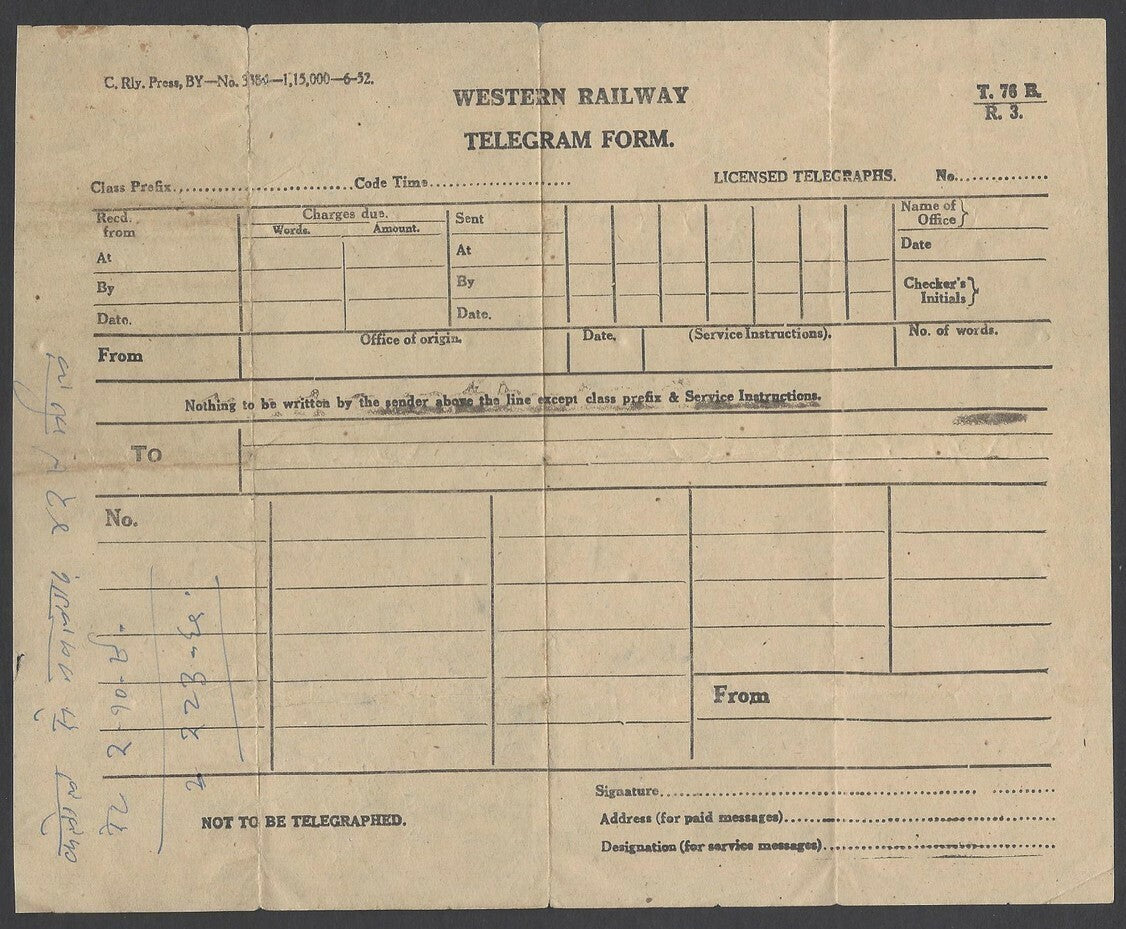 C. Rly. Press, BY—No. 3384—1,15,000—6-52.
WESTERN RAILWAY
T. 76 B.
R. 3.
TELEGRAM FORM.
Class Prefix............Code Time............ LICENSED TELEGRAPHS. No............
Recd. from
Charges due.
Words. Amount.
Sent
Name of Office}
At
At
Date
By
By
Checker's Initials}
Date.
Date.
From
Office of origin.
Date.
(Service Instructions).
No. of words.
Nothing to be written by the sender above the line except class prefix & Service Instructions.
To
No.
From
Signature............
NOT TO BE TELEGRAPHED.
Address (for paid messages)............
Designation (for service messages)............